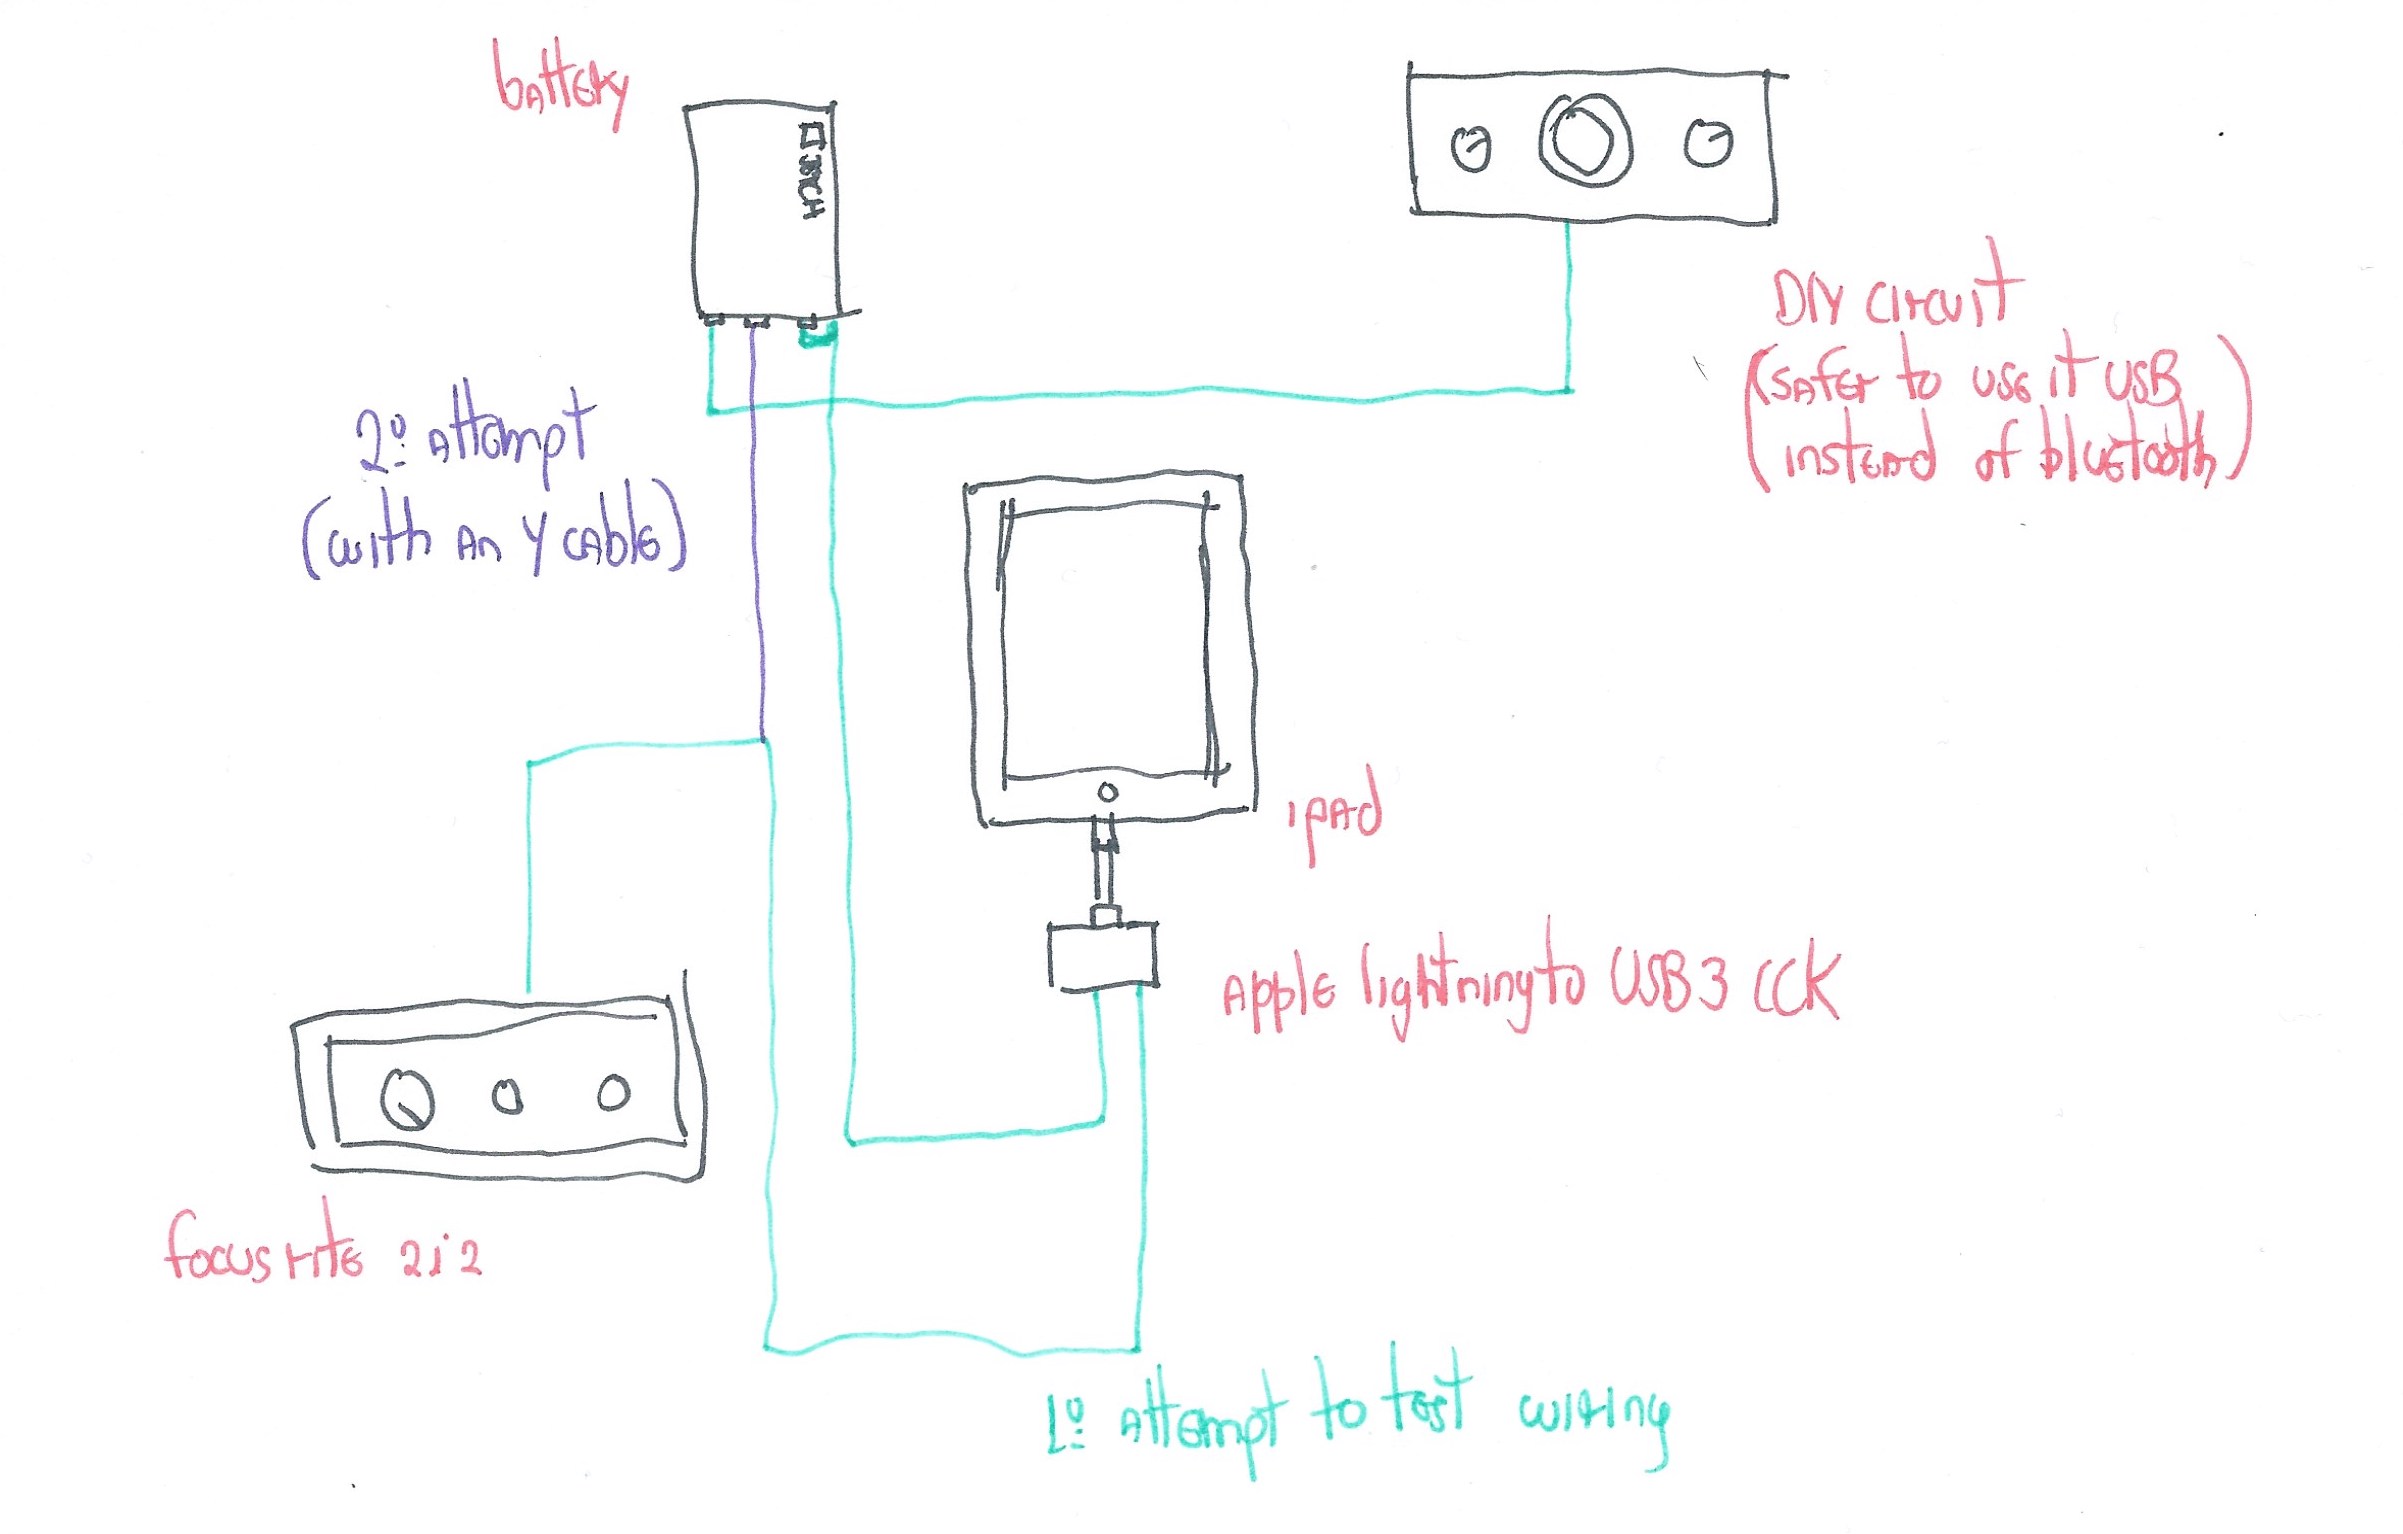 battery
DIY circuit
(safer to use it USB
instead of bluetooth)
2º attempt
(with an Y cable)
ipad
Apple lightning to USB 3 CCK
focusrite 2i2
1º attempt to test wiring